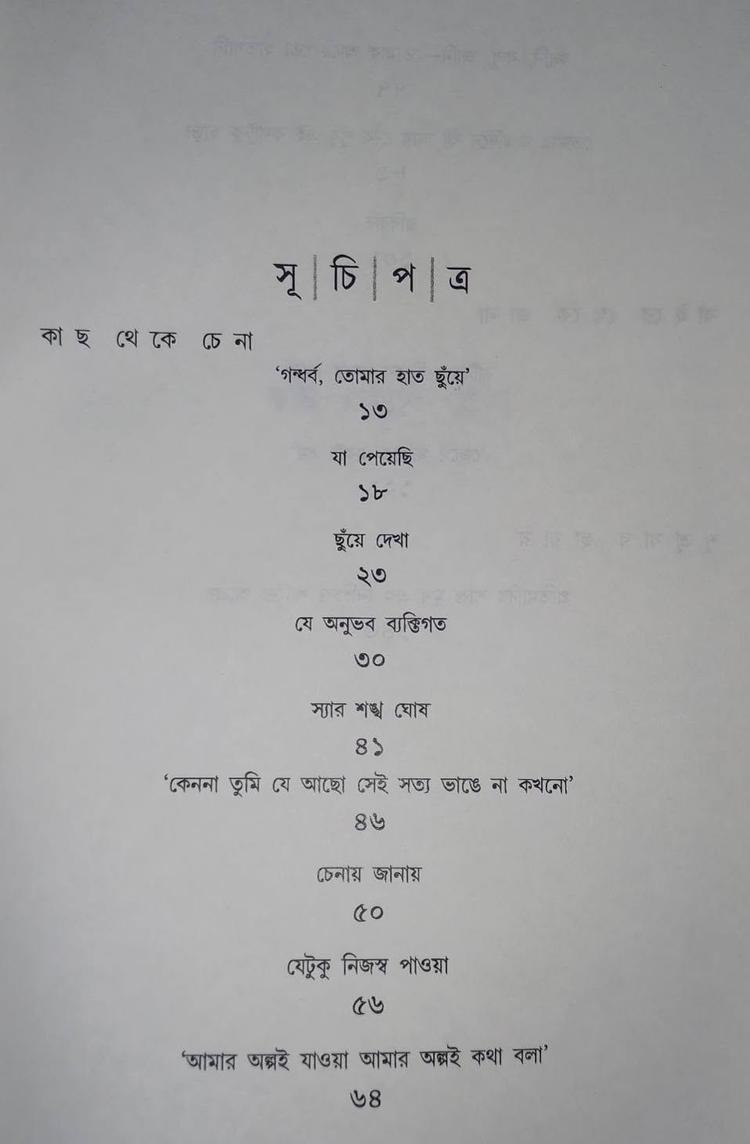 সূ|চি|প|ত্র
কা ছ থে কে চে না
‘গন্ধর্ব, তোমার হাত ছুঁয়ে’
১৩
যা পেয়েছি
১৮
ছুঁয়ে দেখা
২৩
যে অনুভব ব্যক্তিগত
৩০
স্যার শঙ্খ ঘোষ
৪১
‘কেননা তুমি যে আছো সেই সত্য ভাঙে না কখনো’
৪৬
চেনায় জানায়
৫০
যেটুকু নিজস্ব পাওয়া
৫৬
‘আমার অল্পই যাওয়া আমার অল্পই কথা বলা’
৬৪